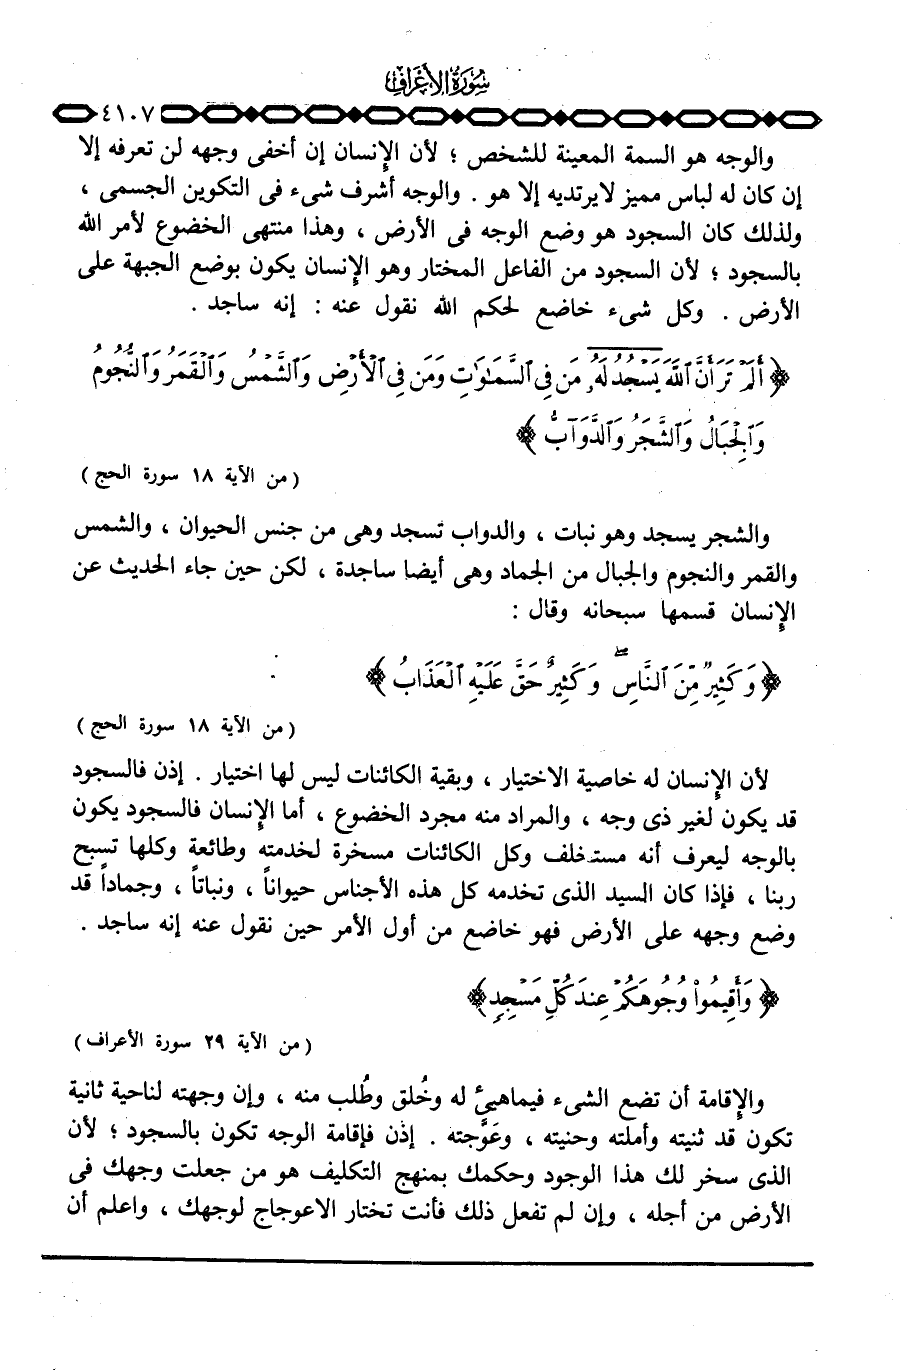 سُورَةُ الأَعْرَافِ
٤١٠٧
والوجه هو السمة المعينة للشخص ؛ لأن الإنسان إن أخفى وجهه لن تعرفه إلا
إن كان له لباس مميز لايرتديه إلا هو . والوجه أشرف شىء فى التكوين الجسمى ،
ولذلك كان السجود هو وضع الوجه فى الأرض ، وهذا منتهى الخضوع لأمر الله
بالسجود ؛ لأن السجود من الفاعل المختار وهو الإنسان يكون بوضع الجبهة على
الأرض . وكل شىء خاضع لحكم الله نقول عنه : إنه ساجد .
﴿ أَلَمْ تَرَ أَنَّ ٱللَّهَ يَسْجُدُ لَهُۥ مَن فِى ٱلسَّمَٰوَٰتِ وَمَن فِى ٱلْأَرْضِ وَٱلشَّمْسُ وَٱلْقَمَرُ وَٱلنُّجُومُ
وَٱلْجِبَالُ وَٱلشَّجَرُ وَٱلدَّوَآبُّ ﴾
( من الآية ١٨ سورة الحج )
والشجر يسجد وهو نبات ، والدواب تسجد وهى من جنس الحيوان ، والشمس
والقمر والنجوم والجبال من الجماد وهى أيضا ساجدة ، لكن حين جاء الحديث عن
الإنسان قسمها سبحانه وقال :
﴿ وَكَثِيرٌ مِّنَ ٱلنَّاسِ ۖ وَكَثِيرٌ حَقَّ عَلَيْهِ ٱلْعَذَابُ ﴾
( من الآية ١٨ سورة الحج )
لأن الإنسان له خاصية الاختيار ، وبقية الكائنات ليس لها اختيار . إذن فالسجود
قد يكون لغير ذى وجه ، والمراد منه مجرد الخضوع ، أما الإنسان فالسجود يكون
بالوجه ليعرف أنه مستخلف وكل الكائنات مسخرة لخدمته وطائعة وكلها تسبح
ربنا ، فإذا كان السيد الذى تخدمه كل هذه الأجناس حيواناً ، ونباتاً ، وجماداً قد
وضع وجهه على الأرض فهو خاضع من أول الأمر حين نقول عنه إنه ساجد .
﴿ وَأَقِيمُوا۟ وُجُوهَكُمْ عِندَ كُلِّ مَسْجِدٍ ﴾
( من الآية ٢٩ سورة الأعراف )
والإقامة أن تضع الشىء فيماهيئ له وخُلق وطُلب منه ، وإن وجهته لناحية ثانية
تكون قد ثنيته وأملته وحنيته ، وعَوَّجته . إذن فإقامة الوجه تكون بالسجود ؛ لأن
الذى سخر لك هذا الوجود وحكمك بمنهج التكليف هو من جعلت وجهك فى
الأرض من أجله ، وإن لم تفعل ذلك فأنت تختار الاعوجاج لوجهك ، واعلم أن